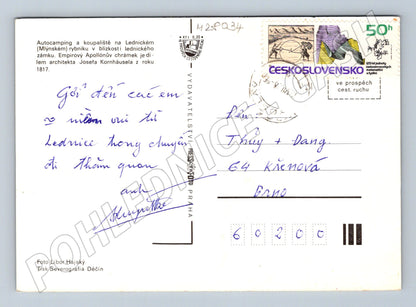 Autocamping a koupaliště na Lednickém
(Mlýnském) rybníku v blízkosti lednického
zámku. Empírový Apollónův chrámek je dí-
lem architekta Josefa Kornhäusela z roku
1817.
M28P034
50h
ČESKOSLOVENSKO
ve prospěch
cest. ruchu
Gởi đến các em
niềm vui từ
Lednice trong chuyến
đi thăm quan
anh
Thúy + Dang
64 Křenová
Brno
60200
VYDAVATELSTVÍ
PRAHA
Foto Libor Hajský
Tisk Severografia Děčín
POHLEDNICE